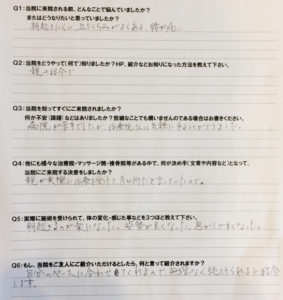 Q1：当院に来院される前、どんなことで悩んでいましたか？
またはどうなりたいと思っていましたか？
朝起きにくい、立ちくらみがよくある、腰が痛い
Q2：当院をどうやって(何で)知りましたか？HP、紹介などお知りになった方法を教えて下さい。
親の紹介で
Q3：当院を知ってすぐにご来院されましたか？
何か不安（躊躇）などはありましたか？些細なことでも構いませんのである場合はお書きください。
病院が苦手でしたが、治療院さんは気軽に来ることができました。
Q4：他にも様々な治療院・マッサージ院・接骨院等がある中で、何が決め手（文章や内容など）となって、
当院にご来院する決意をしましたか？
親が実際に治療を受けて、良い所だと言っていたので。
Q5：実際に施術を受けられて、体の変化・感じた事などを3つほど教えて下さい。
朝起きるのが楽になった。姿勢が良くなった。息がしやすくなった。
Q6：もし、当院をご友人にご紹介いただけるとしたら、何と言って紹介されますか？
自分のペースに合わせてくれるので無理なく続けられると紹介
します。